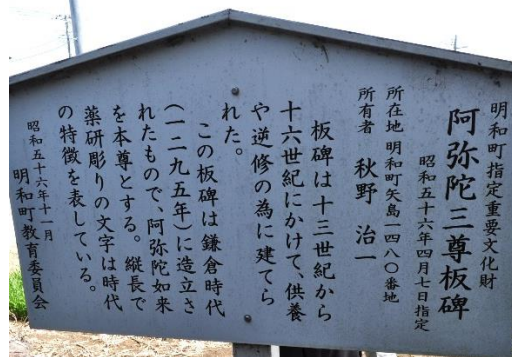 明和町指定重要文化財
阿弥陀三尊板碑
昭和五十六年四月七日指定
所在地 明和町矢島一四八〇番地
所有者 秋野 治一
板碑は十三世紀から
十六世紀にかけて、供養
や逆修の為に建てら
れた。
この板碑は鎌倉時代
(一二九五年)に造立さ
れたもので、阿弥陀如来
を本尊とする。縦長で
薬研彫りの文字は時代
の特徴を表している。
昭和五十六年十一月
明和町教育委員会